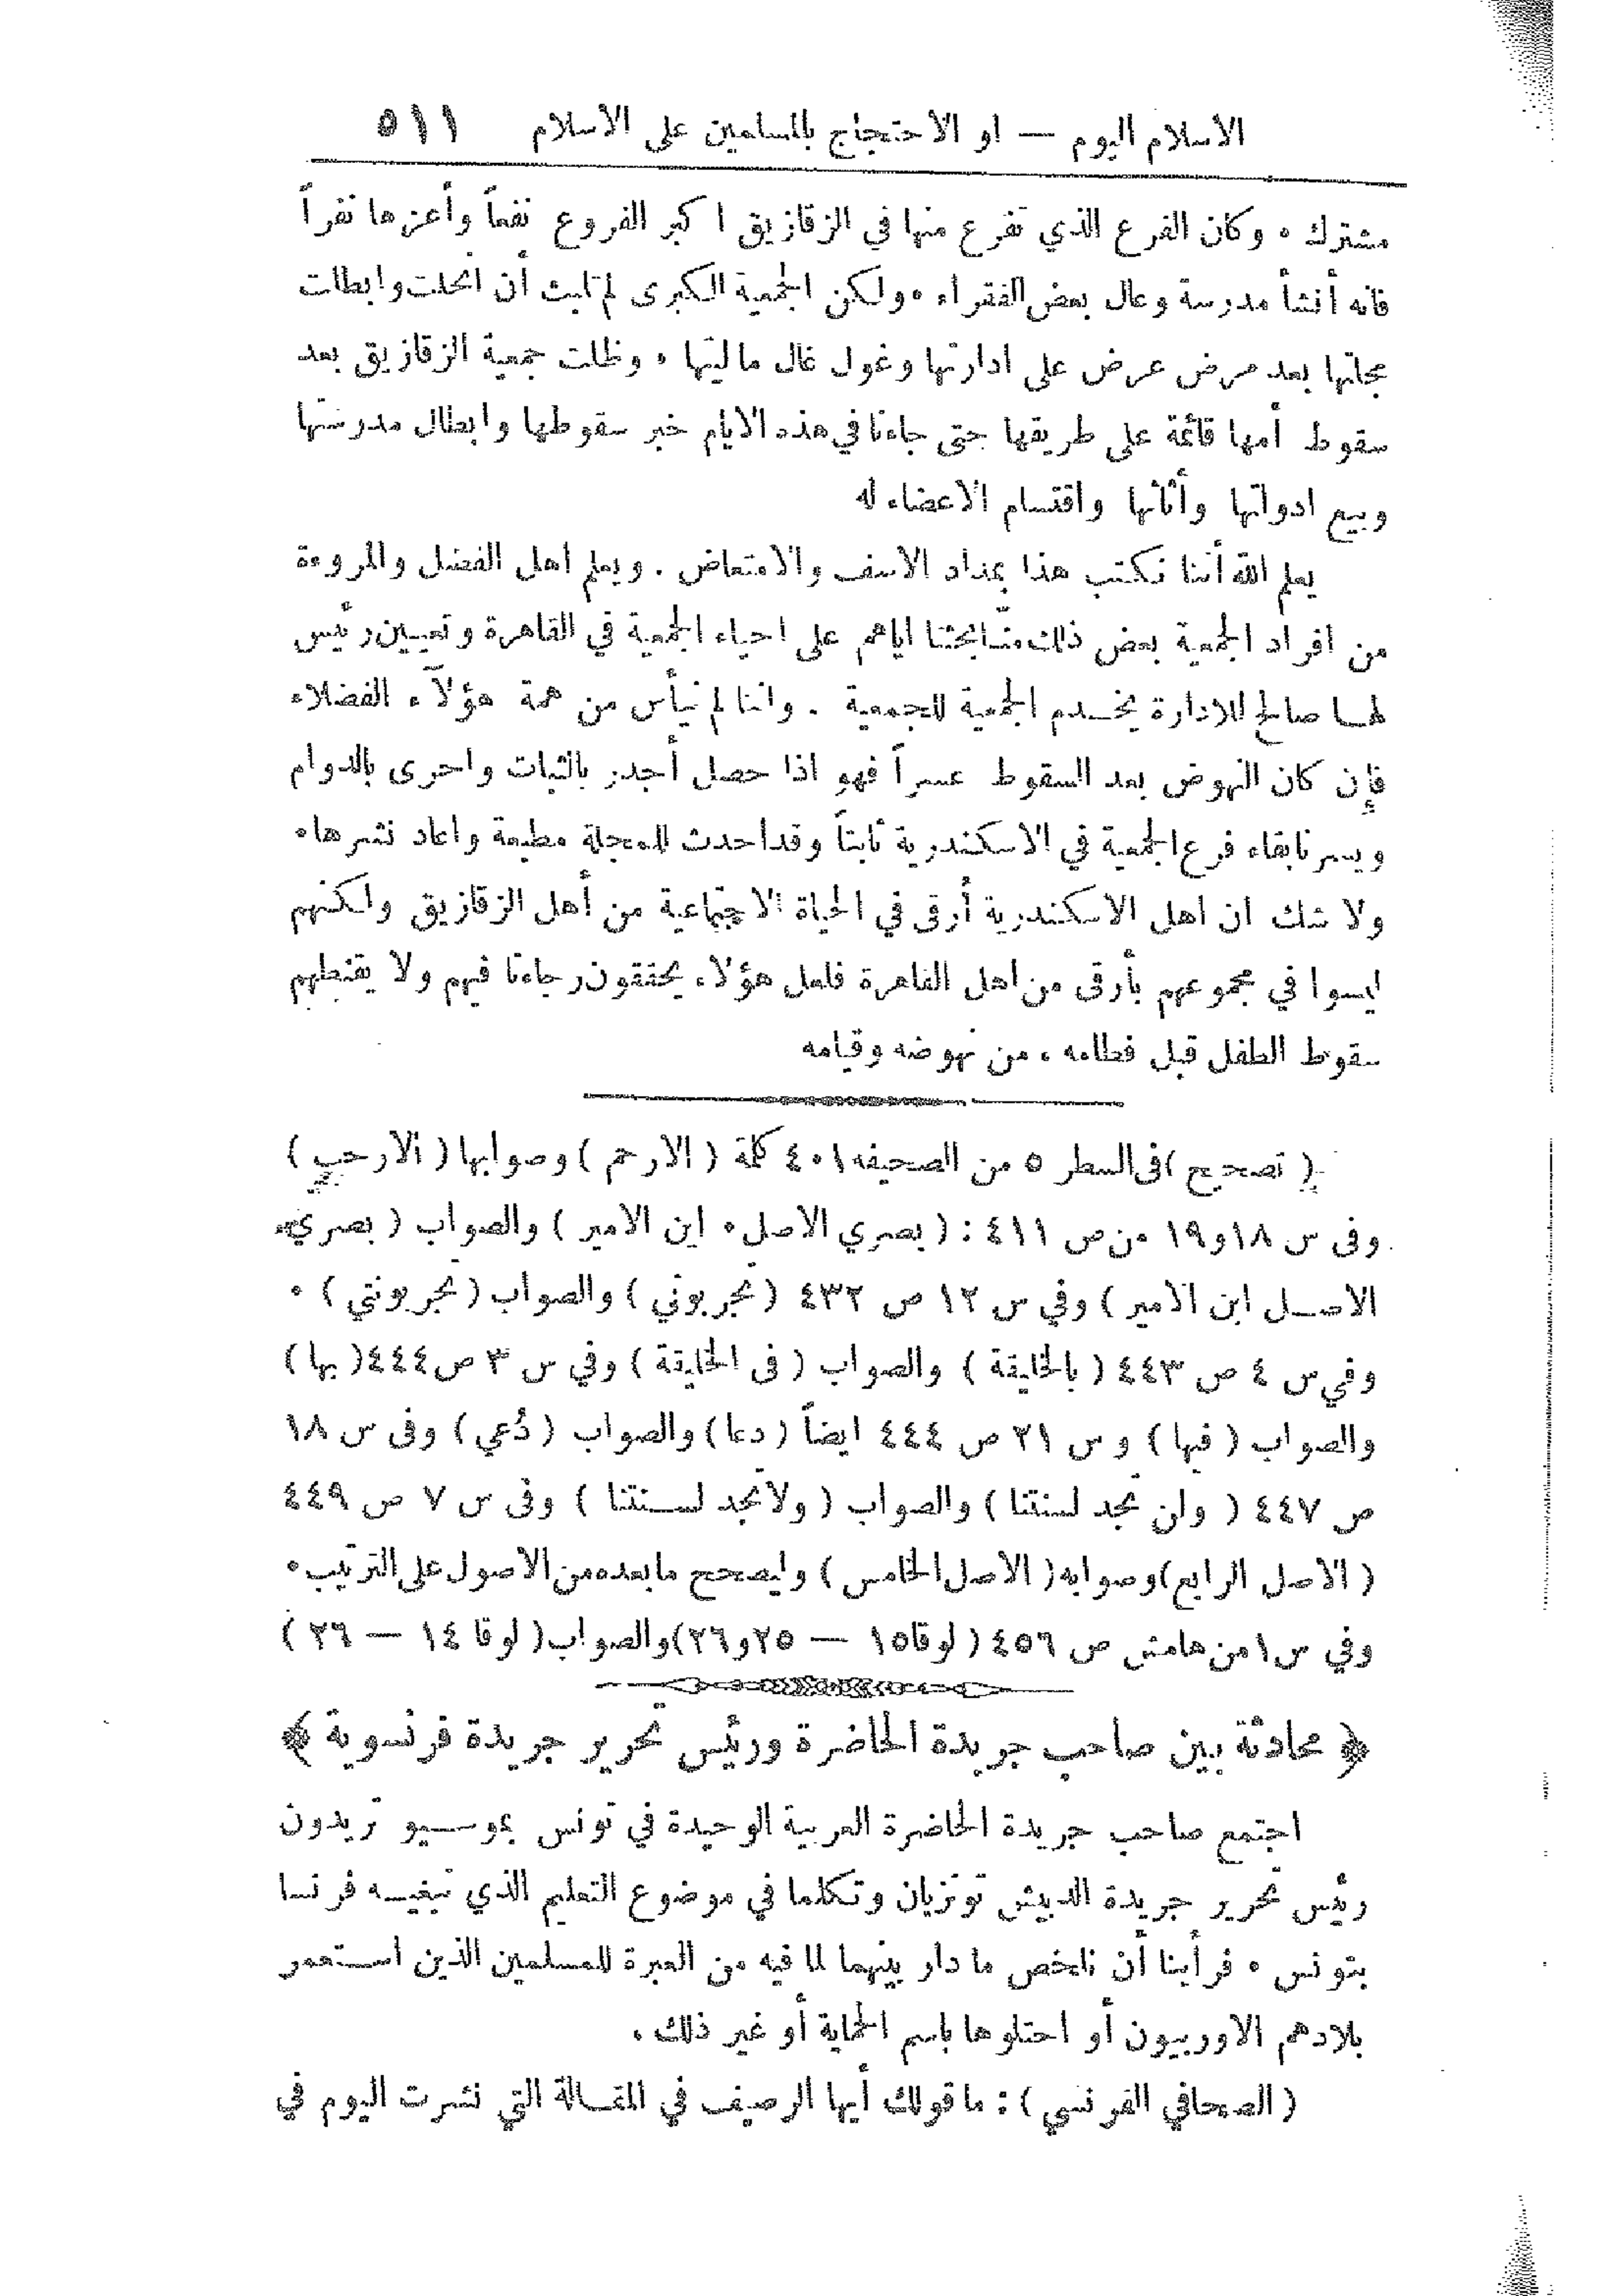 الاسلام اليوم — او الاحتجاج بالمسلمين على الاسلام ٥١١
مشترك ٠ وكان الفرع الذي تفرع منها في الزقازيق اكبر الفروع نفعاً وأعزها نفراً
فانه أنشأ مدرسة وعال بعض الفقراء ٠ ولكن الجمعية الكبرى لم تلبث أن انحلت وابطلت
مجلتها بعد مرض عرض على ادارتها وغول غال ماليتها ٠ وظلت جمعية الزقازيق بعد
سقوط أمها قائمة على طريقها حتى جاءنا في هذه الايام خبر سقوطها وابطال مدرستها
وبيع ادواتها وأثاثها واقتسام الاعضاء له
يعلم الله أننا نكتب هذا بمداد الاسف والامتعاض . ويعلم اهل الفضل والمروءة
من افراد الجمعية بعض ذلك منّا بحثنا اياهم على احياء الجمعية في القاهرة وتعيين رئيس
لها صالح للادارة يخدم الجمعية للجمعية . واننا لم نيأس من همة هؤلآء الفضلاء
فإن كان النهوض بعد السقوط عسراً فهو اذا حصل أجدر بالثبات واحرى بالدوام
ويسرنا بقاء فرع الجمعية في الاسكندرية ثابتاً وقد احدث للمجلة مطبعة واعاد نشرها ٠
ولا شك ان اهل الاسكندرية أرقى في الحياة الاجتماعية من أهل الزقازيق ولكنهم
ليسوا في مجموعهم بأرقى من اهل القاهرة فلعل هؤلاء يحققون رجاءنا فيهم ولا يقنطهم
سقوط الطفل قبل فطامه ، من نهوضه وقيامه
( تصحيح ) فى السطر ٥ من الصحيفه ٤٠١ كلمة ( الارحم ) وصوابها ( الارحبي )
وفى س ١٨و١٩ من ص ٤١١ : ( بصري الاصل ٠ ابن الامير ) والصواب ( بصري
الاصل ابن الامير ) وفي س ١٢ ص ٤٣٢ ( تجربوني ) والصواب ( تجربونني ) ٠
وفي س ٤ ص ٤٤٣ ( بالخليقة ) والصواب ( فى الخليقة ) وفي س ٣ ص ٤٤٤ ( بها )
والصواب ( فيها ) و س ٢١ ص ٤٤٤ ايضاً ( دعا ) والصواب ( دُعي ) وفى س ١٨
ص ٤٤٧ ( ولن تجد لسنتنا ) والصواب ( ولا تجد لسنتنا ) وفى س ٧ ص ٤٤٩
( الاصل الرابع ) وصوابه ( الاصل الخامس ) وليصحح ما بعده من الاصول على الترتيب ٠
وفي س ١ من هامش ص ٤٥٦ ( لوقا ١٥ — ٢٥ و٢٦ ) والصواب ( لوقا ١٤ — ٢٦ )
﴿ محادثة بين صاحب جريدة الحاضرة ورئيس تحرير جريدة فرنسوية ﴾
اجتمع صاحب جريدة الحاضرة العربية الوحيدة في تونس بموسيو تريدون
رئيس تحرير جريدة الدبيش تونزيان وتكلما في موضوع التعليم الذي تبغيه فرنسا
بتونس ٠ فرأينا أن نلخص ما دار بينهما لما فيه من العبرة للمسلمين الذين استعمر
بلادهم الاوربيون أو احتلوها باسم الحماية أو غير ذلك ٠
( الصحافي الفرنسي ) : ما قولك أيها الرصيف في المقالة التي نشرت اليوم في